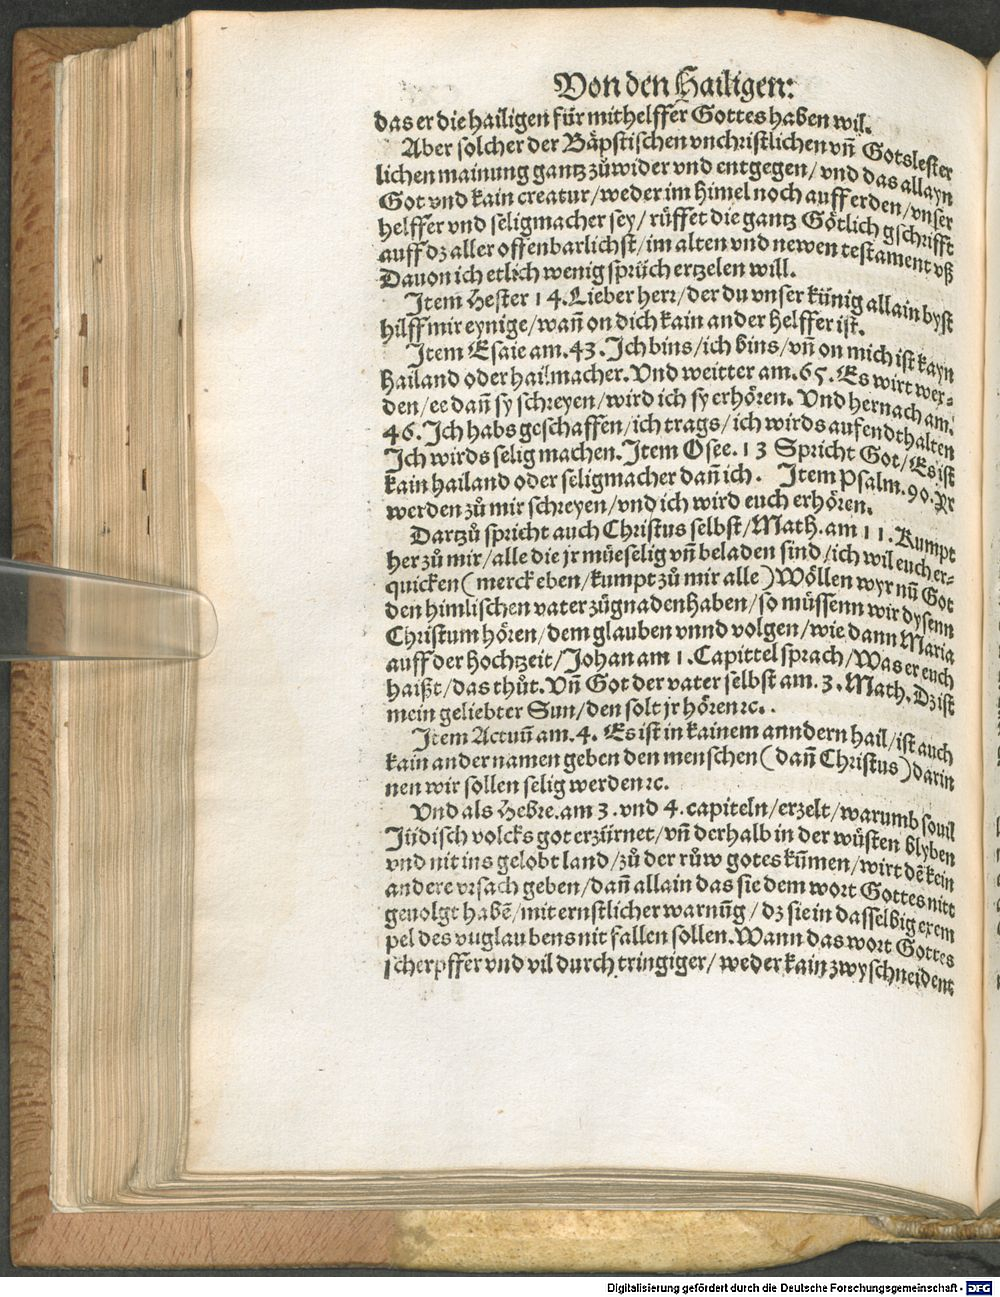 Von den Hailigen:
das er die hailigen für mithelffer Gottes haben wil.
Aber solcher der Bäpstischen vnchristlichen vn̄ Gotslester
lichen mainung gantz zůwider vnd entgegen/ vnd das allayn
Got vnd kain creatur/ weder im himel noch auff erden/ vnser
helffer vnd seligmacher sey/ rüffet die gantz Götlich gschrifft
auff dz aller offenbarlichst/ im alten vnd newen testament vß
Dauon ich etlich wenig sprüch ertzelen will.
Item Hester 14. Lieber herr/ der du vnser künig allain byst
hilff mir eynige/ wan̄ on dich kain ander helffer ist.
Item Esaie am. 43. Ich bins/ ich bins/ vn̄ on mich ist kayn
Hailand oder hailmacher. Vnd weitter am. 65. Es wirt wer-
den/ ee dan̄ sy schreyen/ wird ich sy erhören. Vnd hernach am.
46. Ich habs geschaffen/ ich trags/ ich wirds aufendthalten
Ich wirds selig machen. Item Osee. 13 Spricht Got/ Es ist
kain hailand oder seligmacher dan̄ ich. Item Psalm. 90. Jr
werden zů mir schreyen/ vnd ich wird euch erhören.
Dartzů spricht auch Christus selbst/ Math. am 11. Kumpt
her zů mir/ alle die jr müeselig vn̄ beladen sind/ ich wil euch er-
quicken (merck eben/ kumpt zů mir alle) Wöllen wyr nū Got
den himlischen vater zůgnaden haben/ so müssenn wir dysenn
Christum hören/ dem glauben vnnd volgen/ wie dann Maria
auff der Hochtzeit/ Johan am 1. Capittel sprach/ Was er euch
haißt/ das thůt. Vn̄ Got der vater selbst am. 3. Math. Dz ist
mein geliebter Sun/ den solt jr hören ꝛc..
Item Actuū am. 4. Es ist in kainem anndern hail/ ist auch
kain ander namen geben den menschen (dan̄ Christus) darin
nen wir sollen selig werden ꝛc.
Vnd als Hebre. am 3. vnd 4. capiteln/ erzelt/ warumb souil
Jüdisch volcks got erzürnet/ vn̄ derhalb in der wůsten blyben
vnd nit ins gelobt land/ zů der růw gotes kum̄en/ wirt dē kein
andere vrsach geben/ dan̄ allain das sie dem wort Gottes nitt
geuolgt habē/ mit ernstlicher warnūg/ dz sie in dasselbig exem
pel des vuglaubens nit fallen sollen. Wann das wort Gottes
scherpffer vnd vil durchtringiger/ weder kain zwyschneident
Digitalisierung gefördert durch die Deutsche Forschungsgemeinschaft - DFG